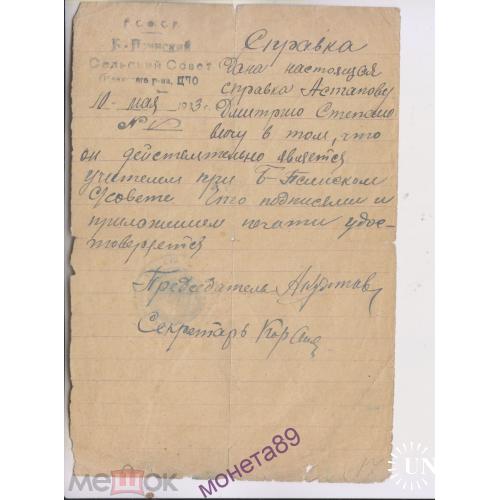 Р.С.Ф.С.Р.
Сельский Совет
ЦЧО
10 - мая 193
№
Справка
Дана настоящая
справка Астапову
Дмитрию Степано
вичу в том, что
он действительно является
учителем при Б-
С/совете что подписями и
приложением печати удос-
товеряется
Председатель
Секретарь
монета89
МЕШОК
UN